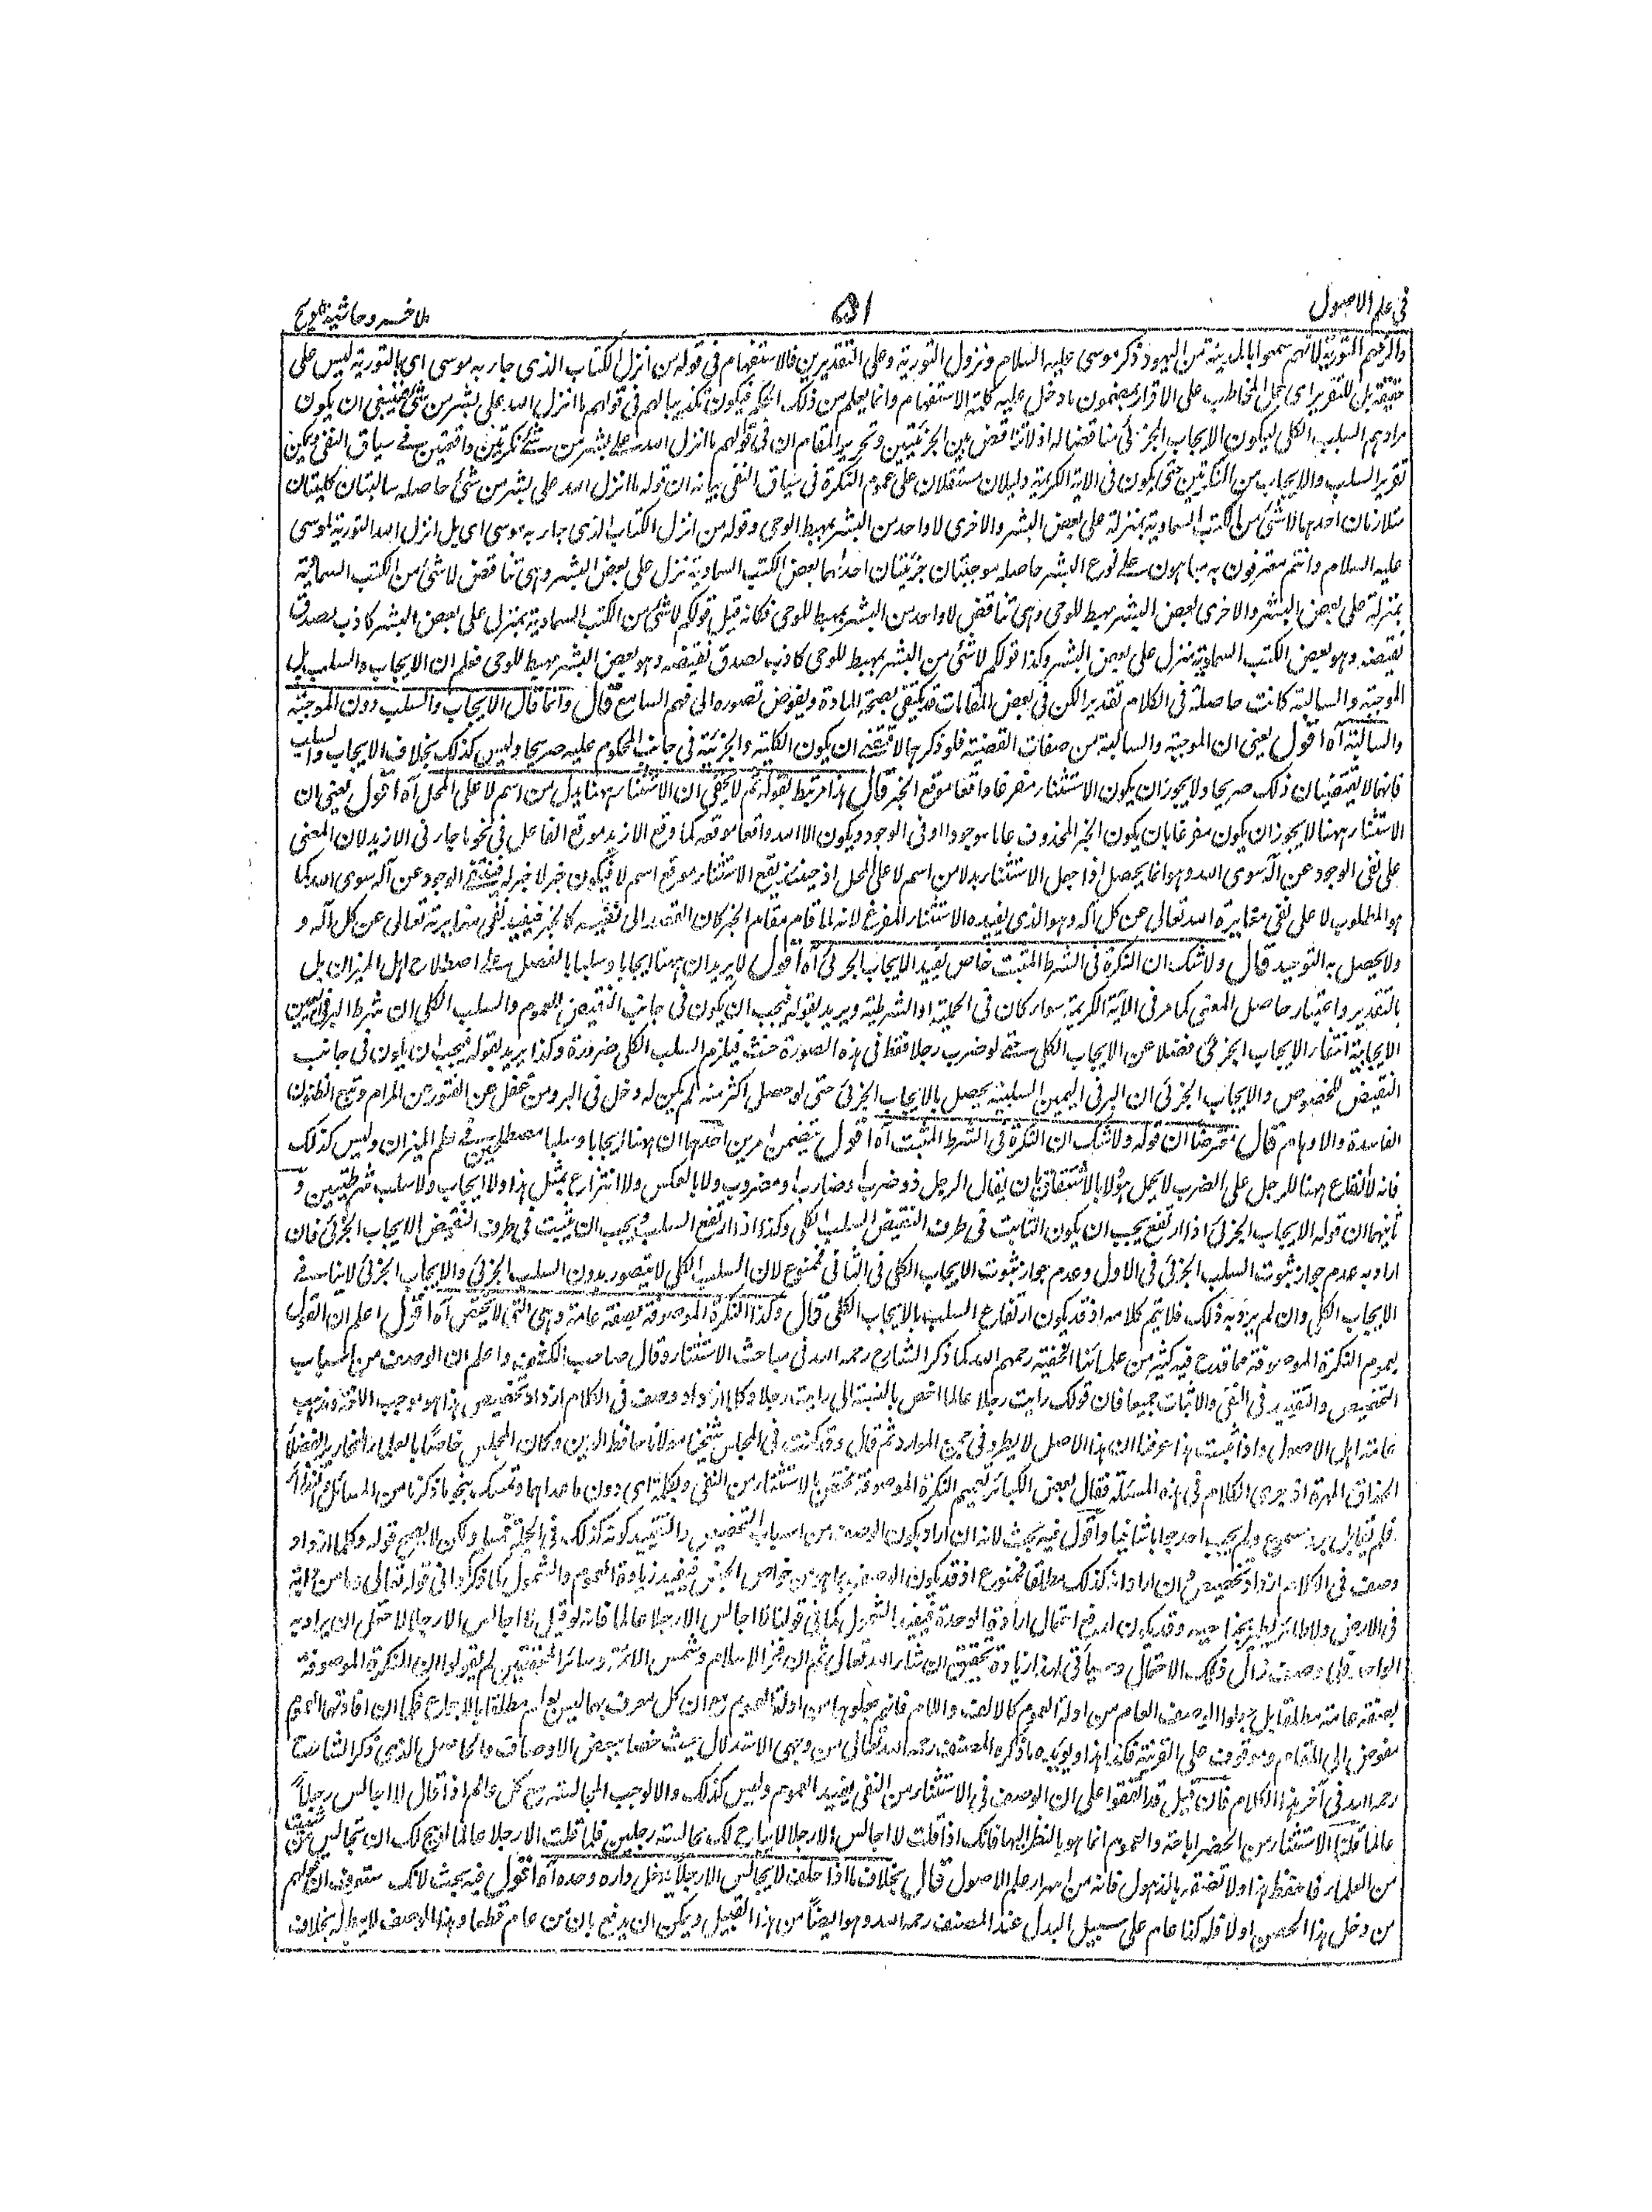 في علم الاصول
١٥١
ملا خسرو حاشية تلويح
والزعم التورية لانهم سمعوا بالمدينة من اليهود ذكر موسى عليه السلام ونزول التورية وعلى التقديرين فالاستفهام في قوله من انزل الكتاب الذى جاء به موسى اى بالتورية ليس على
حقيقته بل للتقرير اى حمل المخاطب على الاقرار بمضمون ما دخل عليه كلمة الاستفهام وانما يعلم من ذلك الحكم فيكون تكذيبا لهم في قولهم ما انزل الله على بشر من شئ فينبغي ان يكون
مرادهم السلب الكلى ليكون الايجاب الجزئى مناقضا له اذ لا تناقض بين الجزئيتين وتحرير المقام ان في قولهم ما انزل الله على بشر من شئ نكرتين واقعتين في سياق النفى ويمكن
تقرير السلب والايجاب من النكرتين حتى يكون في الاية الكريمة دليلان مستقلان على عموم النكرة في سياق النفى بيانه ان قوله ما انزل الله على بشر من شئ حاصله سالبتان كليتان
متلازمتان احدهما لا شئ من الكتب السماوية بمنزلة على بعض البشر والاخرى لا واحد من البشر بمهبط الوحى وقوله من انزل الكتاب الذى جاء به موسى اى بل انزل الله التورية لموسى
عليه السلام وانتم معترفون به مباهون على نوع البشر حاصله موجبتان جزئيتان احداهما بعض الكتب السماوية نزل على بعض البشر وهى تناقض لا شئ من الكتب السماوية
بمنزلة على بعض البشر والاخرى بعض البشر مهبط للوحى وهى تناقض لا واحد من البشر بمهبط للوحى فكانه قيل قولكم لا شئ من الكتب السماوية بمنزل على بعض البشر كاذب لصدق
نقيضه وهو بعض الكتب السماوية منزل على بعض البشر وكذا قولكم لا شئ من البشر بمهبط للوحى كاذب لصدق نقيضه وهو بعض البشر مهبط للوحى فعلم ان الايجاب والسلب بل
الموجبة والسالبة كانت حاصلة في الكلام تقديرا لكن في بعض المقامات قد يكتفى بصحة المادة ويفوض تصوره الى فهم السامع قال وانما قال الايجاب والسلب دون الموجبة
والسالبة آه اقول يعنى ان الموجبة والسالبة من صفات القضية فلو ذكرهما لاقتضى ان يكون الكلية والجزئية في جانب المحكوم عليه صريحا وليس كذلك بخلاف الايجاب والسلب
فانهما لا يقتضيان ذلك صريحا ولا يجوز ان يكون الاستثناء مفرغا واقعا موقع الخبر قال هذا مرتبط بقوله ثم لا يخفى ان الاستثناء ههنا بدل من اسم لا على المحل آه اقول يعنى ان
الاستثناء ههنا لا يجوز ان يكون مفرغا بان يكون الخبر المحذوف عاما موجودا او في الوجود ويكون الا الله واقعا موقعه كما وقع الا زيد موقع الفاعل في نحو ما جاءنى الا زيد لان المعنى
على نفى الوجود عن آله سوى الله وهو انما يحصل اذا جعل الاستثناء بدلا من اسم لا على المحل اذ حينئذ يقع الاستثناء موقع اسم لا فيكون خبر لا خبر له فينتفى الوجود عن آله سوى الله كما
هو المطلوب لا على نفى مغايرة الله تعالى عن كل آله وهو الذى يفيده الاستثناء المفرغ لانه لما قام مقام الخبر كان القصد الى نفيه كالخبر فيفيد نفى مغايرته تعالى عن كل آله و
ولا يحصل به التوحيد قال ولا شك ان النكرة في الشرط المثبت خاص يفيد الايجاب الجزئى آه اقول لا يريد ان ههنا ايجابا وسلبا بالفعل على اصطلاح اهل الميزان بل
بالتقدير واعتبار حاصل المعنى كما مر في الآية الكريمة سواء كان في الحملية او الشرطية ويريد بقوله فيجب ان يكون في جانب النقيض العموم والسلب الكلى ان شرط البر في اليمين
الايجابية انتفاء الايجاب الجزئى فضلا عن الايجاب الكلى حتى لو ضرب رجلا فقط في هذه الصورة حنث فيلزم السلب الكلى ضرورة وكذا يريد بقوله فيجب ان يكون في جانب
النقيض للخصوص والايجاب الجزئى ان البر في اليمين السلبية يحصل بالايجاب الجزئى حتى لو حصل اكثر منه لم يكن له دخل في البر ومن غفل عن العثور من المرام وتتبع الظنون
الفاسدة والاوهام قال معترضا ان قوله ولا شك ان النكرة في الشرط المثبت آه اقول يتضمن امرين احدهما ان ههنا ايجابا وسلبا مصطلحين في علم الميزان وليس كذلك
فانه لا ايقاع ههنا للرجل على الضرب لا بحمل هو ولا بالاشتقاق بان يقال الرجل ذو ضرب او ضارب او مضروب ولا بالعكس ولا انتزاع بمثل هذا ولا ايجاب ولا سلب شرطيتين و
ثانيهما ان قوله الايجاب الجزئى اذا ارتفع يجب ان يكون الثابت في طرف النقيض السلب الكلى وكذا اذا ارتفع السلب يجب ان يثبت في طرف النقيض الايجاب الجزئى فان
اراد به عدم جواز ثبوت السلب الجزئى في الاول وعدم جواز ثبوت الايجاب الكلى في الثانى فممنوع لان السلب الكلى لا يتصور بدون السلب الجزئى والايجاب الجزئى لا ينافى
الايجاب الكلى وان لم يرد به ذلك فلا يتم كلامه اذ قد يكون ارتفاع السلب بالايجاب الكلى قال وكذا النكرة الموصوفة بصفة عامة وهى التى لا يختص آه اقول اعلم ان القول
بعموم النكرة الموصوفة مما قدح فيه كثير من علمائنا الحنفية رحمهم الله كما ذكر الشارح رحمه الله في مباحث الاستثناء وقال صاحب الكشف واعلم ان الوصف من اسباب
التخصيص والتقييد في النفى والاثبات جميعا فان قولك رايت رجلا عالما اخص بالنسبة الى رايت رجلا وكلما ازداد وصف في الكلام ازداد تخصيص هذا هو موجب اللغة ومذهب
عامة اهل الاصول واذا ثبت هذا عرفنا ان هذا الاصل لا يطرد في جميع الموارد ثم قال وقد كنت في المجلس شيخنا مولانا حافظ الدين وكان المجلس غاصًا بالعلماء النحارير الفضلاء
الحذاق المهرة اذ جرى الكلام في هذه المسئلة فقال بعض الكبار تعميم النكرة الموصوفة مختص بالاستثناء من النفى وبكلمة اى دون ما عداهما وتمسك بنحو ما ذكرنا من المسائل
فلم يقابل برد مسموع ولم يجب احد جوابا شافيا واقول فيه بحث لانه ان اراد بكون الوصف من اسباب التخصيص والتقييد كونه كذلك في الجملة فمسلم ولكن لا يصح قوله وكلما ازداد
وصف في الكلام ازداد تخصيص وان اراد انه كذلك مطلقا فممنوع اذ قد يكون الوصف مما هو من خواص الجنس فيفيد زيادة العموم والشمول كما ذكروا في قوله تعالى وما من دابة
في الارض ولا طائر يطير بجناحيه وقد يكون لرفع احتمال ارادة الوحدة فيفيد الشمول كما في قولنا لا اجالس الا رجلا عالما فانه لو قيل لا اجالس الا رجلا لاحتمل ان يراد به
الواحد فلما وصف زال ذلك الاحتمال وسيأتى لهذا زيادة تحقيق ان شاء الله تعالى ثم ان فخر الاسلام وشمس الائمة وسائر المحققين لم يقولوا ان النكرة الموصوفة
بصفة عامة مطلقا بل جعلوا الوصف العام من ادلة العموم كالالف واللام فانهم جعلوها من ادلة العموم مع ان كل معرف بهما ليس بعام مطلقا بالاجماع فكما ان افادتهما العموم
مفوض الى المقام وموقوف على القرينة فكذا هذا ويؤيده ما ذكره المصنف رحمه الله تعالى من وجهى الاستدلال حيث خصا ببعض الاوصاف والحاصل الذى ذكر الشارح
رحمه الله في آخر هذا الكلام فان قيل قد اتفقوا على ان الوصف في الاستثناء من النفى يفيد العموم وليس كذلك والا لوجب المجالسة مع كل عالم اذا قال لا اجالس رجلاً
عالما قلنا الاستثناء من الحضر اباحة والعموم انما هو بالنظر اليها فانك اذا قلت لا اجالس الا رجلا لا يباح لك مجالسة رجلين فلما قلت الا رجلا عالما ابيح لك ان تجالس من شئت
من العلماء فاحفظ هذا ولا تضعه بالذهول فانه من اسرار علم الاصول قال بخلاف ما اذا حلف لا يجالس الا رجلا يدخل داره وحده آه اقول فيه بحث لانك ستعرف ان قولهم
من دخل هذا الحصن اولا فله كذا عام على سبيل البدل عند المصنف رحمه الله وهو ايضاً من هذا القبيل ويمكن ان يدفع بان من عام قطعا وهذا الوصف لا يبطله بخلاف